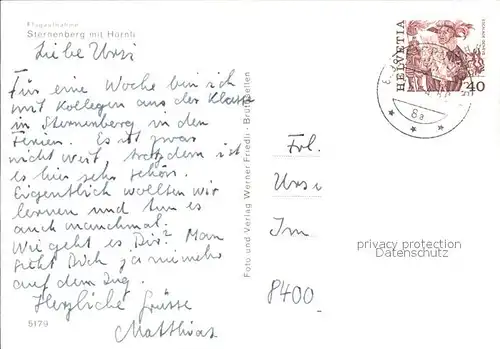 Flugaufnahme
Sternenberg mit Hörnli
Liebe Ursi
Für eine Woche bin ich
mit Kollegen aus der Klasse
in Sternenberg in den
Ferien. Es ist zwar
nicht weit, trotzdem ist
es hier sehr schön.
Eigentlich wollten wir
lernen und tun es
auch manchmal.
Wie geht es Dir? Man
sieht Dich ja nie mehr
auf dem Zug.
Herzliche Grüsse
Matthias
5179
Foto und Verlag Werner Friedli - Brüttisellen
HELVETIA
ESCALADE GENÈVE
40
8a
Frl.
Ursi
Im
privacy protection
Datenschutz
8400